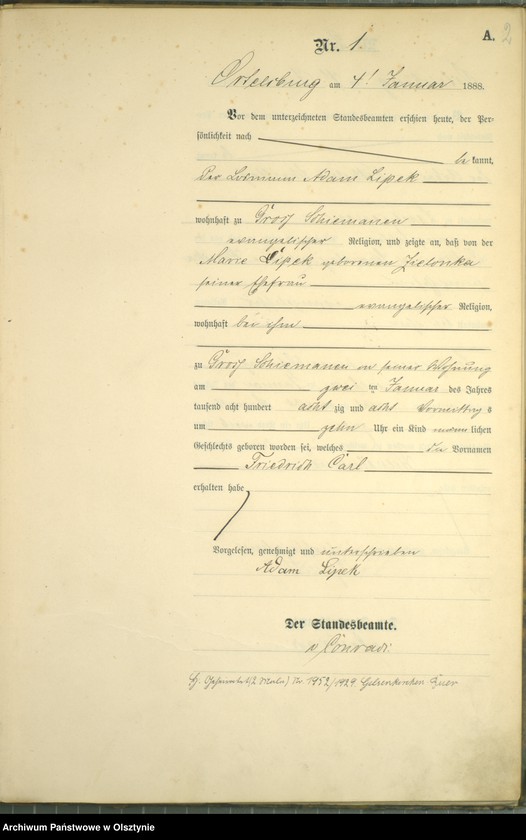 A. 2
Nr. 1.
Ortelsburg am 4t Januar 1888.
Vor dem unterzeichneten Standesbeamten erschien heute, der Per-
sönlichkeit nach
be kannt,
der Losmann Adam Lipek
wohnhaft zu Groß Schiemanen
evangelischer Religion, und zeigte an, daß von der
Marie Lipek geborenen Zielonka
seiner Ehefrau
evangelischer Religion,
wohnhaft bei ihm
zu Groß Schiemanen in seiner Wohnung
am zwei ten Januar des Jahres
tausend acht hundert acht zig und acht Vormittag s
um zehn Uhr ein Kind männlichen
Geschlechts geboren worden sei, welches die Vornamen
Friedrich Carl
erhalten habe
Vorgelesen, genehmigt und unterschrieben
Adam Lipek
Der Standesbeamte.
v Conradi.
Nr. 1952/1929 Gelsenkirchen Buer
Archiwum Państwowe w Olsztynie